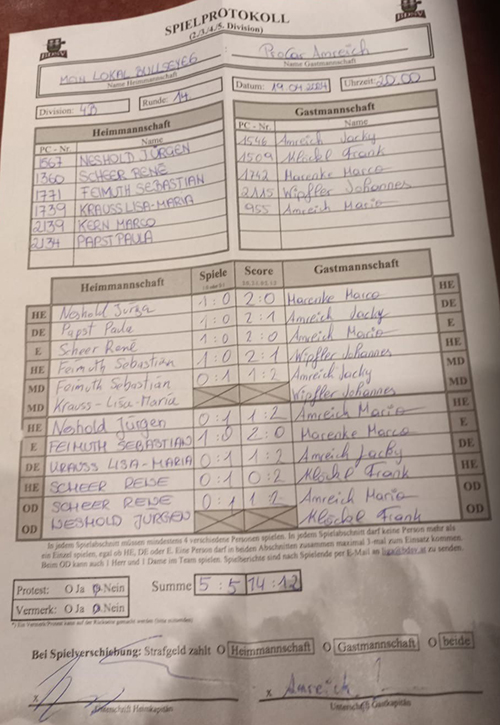 SPIELPROTOKOLL
(2/3/4/5. Division)
MEIN LOKAL BULLSEYES
Name Heimmannschaft
ProCar Amreich
Name Gastmannschaft
Division: 4D
Runde: 14
Datum: 19.04.2024
Uhrzeit: 20.00
Heimmannschaft
PC - Nr. Name
1567 NESHOLD JÜRGEN
1360 SCHEER RENÈ
1771 FEIMUTH SEBASTIAN
1739 KRAUSS LISA-MARIA
2139 KERN MARCO
2134 PAPST PAULA
Gastmannschaft
PC - Nr. Name
1546 Amreich Jacky
1509 Klöckel Frank
1742 Marenke Marco
2115 Wipfler Johannes
955 Amreich Mario
Heimmannschaft Spiele Score Gastmannschaft
HE Neshold Jürgen 1:0 2:0 Marenke Marco HE
DE Papst Paula 1:0 2:1 Amreich Jacky DE
E Scheer Renè 1:0 2:0 Amreich Mario E
HE Feimuth Sebastian 1:0 2:1 Wipfler Johannes HE
MD Feimuth Sebastian 0:1 1:2 Amreich Jacky MD
MD Krauss-Lisa-Maria Wipfler Johannes MD
HE Neshold Jürgen 0:1 1:2 Amreich Mario HE
E FEIMUTH SEBASTIAN 1:0 2:0 Marenke Marco E
DE KRAUSS LISA-MARIA 0:1 1:2 Amreich Jacky DE
HE SCHEER RENE 0:1 0:2 Klöckel Frank HE
OD SCHEER RENE 0:1 1:2 Amreich Mario OD
OD NESHOLD JÜRGEN Klöckel Frank OD
In jedem Spielabschnitt müssen mindestens 4 verschiedene Personen spielen. In jedem Spielabschnitt darf keine Person mehr als
ein Einzel spielen, egal ob HE, DE oder E. Eine Person darf in beiden Abschnitten zusammen maximal 3-mal zum Einsatz kommen.
Beim OD kann auch 1 Herr und 1 Dame im Team spielen. Spielberichte sind nach Spielende per E-Mail an liga@bdsv.at zu senden.
Protest: O Ja O Nein
Summe 5:5 14:12
Vermerk: O Ja O Nein
Bei Spielverschiebung: Strafgeld zahlt O Heimmannschaft O Gastmannschaft O beide
x
x Amreich
Unterschrift Heimkapitän
Unterschrift Gastkapitän